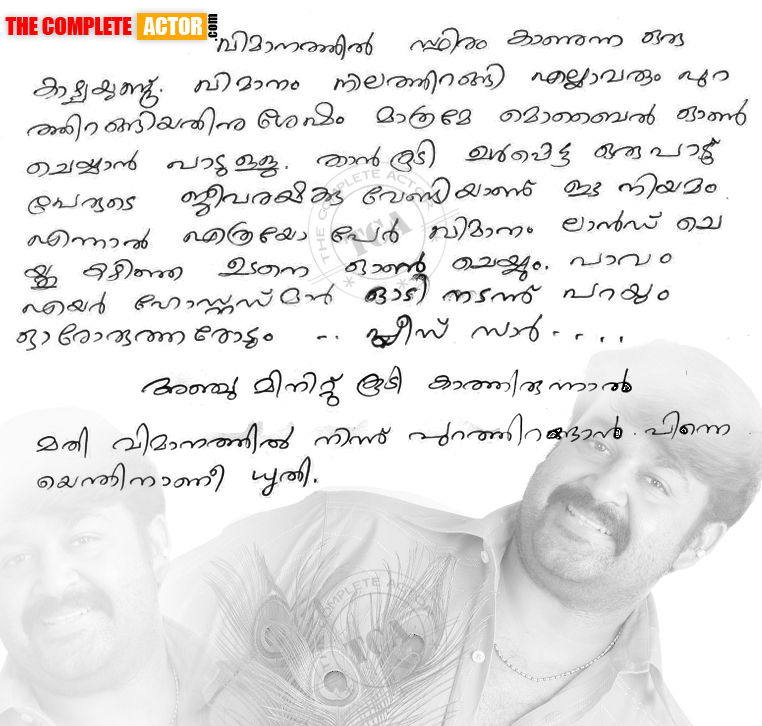 THE COMPLETE ACTOR.com
വിമാനത്തിൽ സ്ഥിരം കാണുന്ന ഒരു
കാഴ്ചയുണ്ട്. വിമാനം നിലത്തിറങ്ങി എല്ലാവരും പുറ
ത്തിറങ്ങിയതിനു ശേഷം മാത്രമേ മൊബൈൽ ഓൺ
ചെയ്യാൻ പാടുള്ളു. താൻകൂടി ഉൾപ്പെട്ട ഒരുപാട്
പേരുടെ ജീവരക്ഷക്കു വേണ്ടിയാണ് ഈ നിയമം
എന്നാൽ എത്രയോ പേർ വിമാനം ലാൻഡ് ചെ
യ്തു കഴിഞ്ഞ ഉടനെ ഓൺ ചെയ്യും. പാവം
എയർ ഹോസ്റ്റസ്മാർ ഓടി നടന്ന് പറയും
ഓരോരുത്തരോടും .. പ്ലീസ് സാർ. . . .
അഞ്ചു മിനിറ്റ് കൂടി കാത്തിരുന്നാൽ
മതി വിമാനത്തിൽ നിന്ന് പുറത്തിറങ്ങാൻ. പിന്നെ
യെന്തിനാണീ ധൃതി.
THE COMPLETE ACTOR
TCA
THE COMPLETE ACTOR
TCA